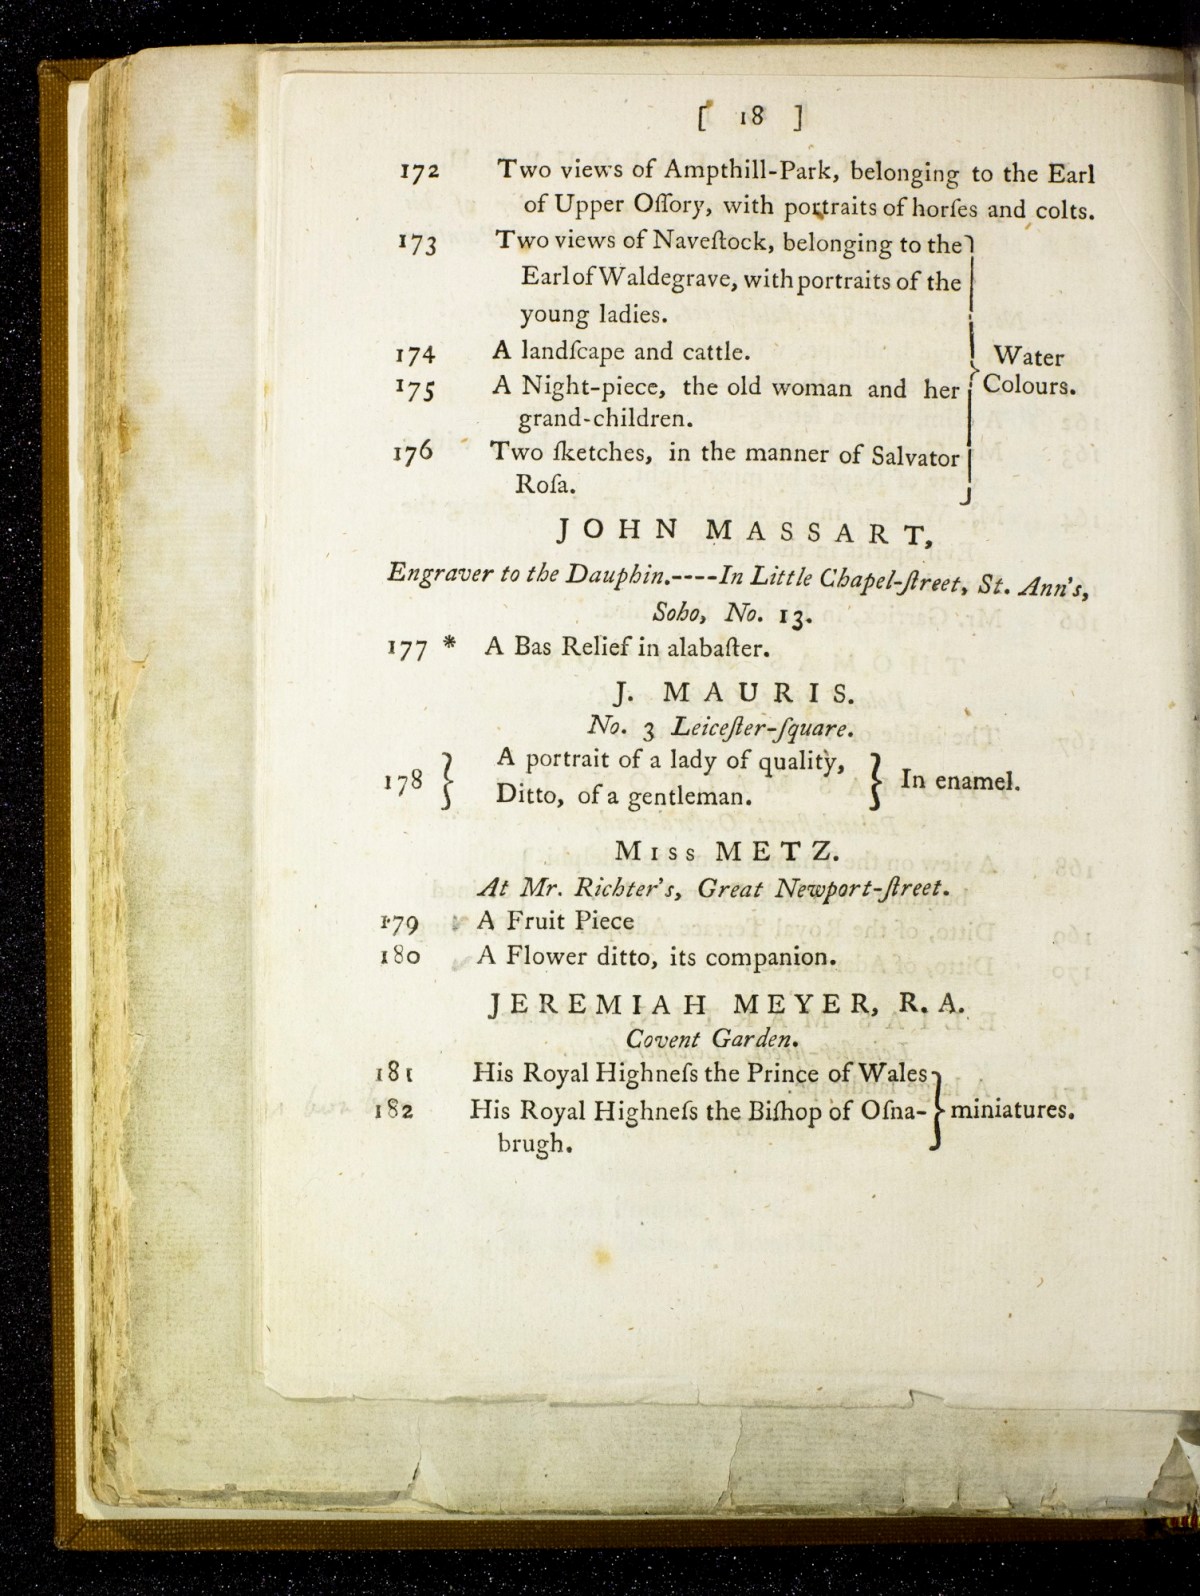 [ 18 ]
172 Two views of Ampthill-Park, belonging to the Earl
of Upper Oſſory, with portraits of horſes and colts.
173 Two views of Naveſtock, belonging to the
Earl of Waldegrave, with portraits of the
young ladies.
174 A landſcape and cattle.
175 A Night-piece, the old woman and her
grand-children.
176 Two ſketches, in the manner of Salvator
Roſa.
} Water
Colours.
JOHN MASSART,
Engraver to the Dauphin.----In Little Chapel-ſtreet, St. Ann's,
Soho, No. 13.
177 * A Bas Relief in alabaſter.
J. MAURIS.
No. 3 Leiceſter-ſquare.
178 { A portrait of a lady of quality,
Ditto, of a gentleman. } In enamel.
Miss METZ.
At Mr. Richter's, Great Newport-ſtreet.
179 A Fruit Piece
180 A Flower ditto, its companion.
JEREMIAH MEYER, R. A.
Covent Garden.
181 His Royal Highneſs the Prince of Wales
182 His Royal Highneſs the Biſhop of Oſna- } miniatures.
brugh.